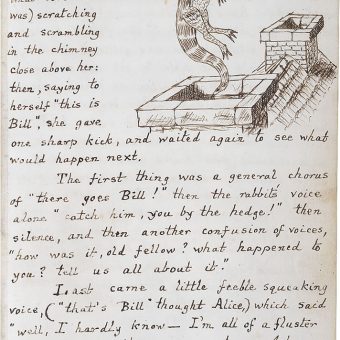 was) scratching
and scrambling
in the chimney
close above her:
then, saying to
herself "this is
Bill", she gave
one sharp kick, and waited again to see what
would happen next.
The first thing was a general chorus
of "there goes Bill!" then the rabbit's voice
alone "catch him, you by the hedge!" then
silence, and then another confusion of voices,
"how was it, old fellow? what happened to
you? tell us all about it."
Last came a little feeble squeaking
voice, ("that's Bill" thought Alice,) which said
"well, I hardly know — I'm all of a fluster